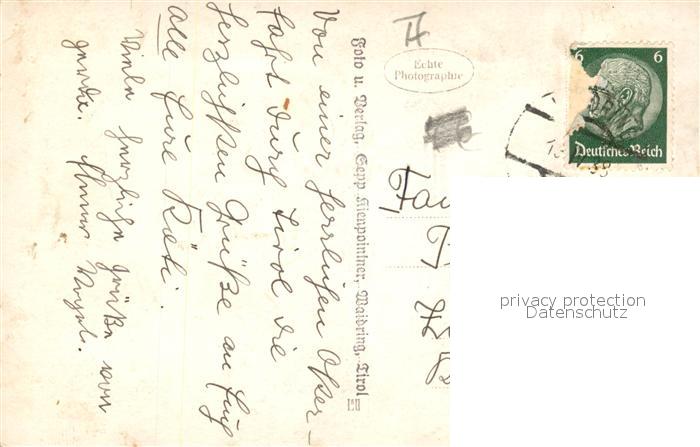 Von einer herrlichen Oster-
fahrt durch Tirol die
herzlichsten Grüße an Euch
alle Eure Käti.
Viele herzliche Grüße von
Gerda.
Foto u. Verlag, Sepp Kienpointner, Waidring, Tirol
Echte
Photographie
6 6
Deutsches Reich
privacy protection
Datenschutz